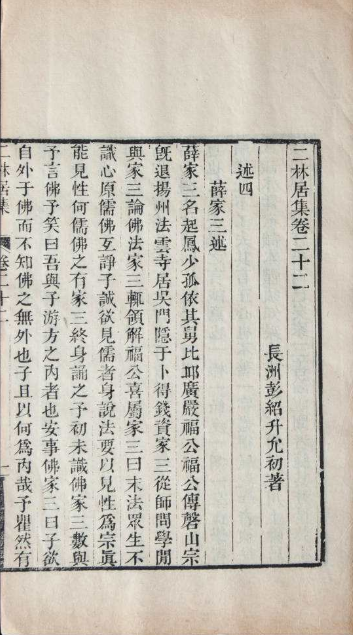 二林居集卷二十二
長洲彭紹升允初著
述四
薛家三述
薛家三名起鳳少孤依其舅比邱廣嚴福公福公傳磬山宗
既退揚州法雲寺居吳門隱于卜得錢資家三從師問學閒
與家三論佛法家三輒領解福公喜屬家三曰末法眾生不
識心原儒佛互諍子誠欲見儒者身說法要以見性爲宗眞
能見性何儒佛之有家三終身誦之予初未識佛家三數與
予言佛予笑曰吾與子游方之內者也安事佛家三曰子欲
自外于佛而不知佛之無外也子且以何爲內哉予瞿然有
二林居集
卷二十二
一